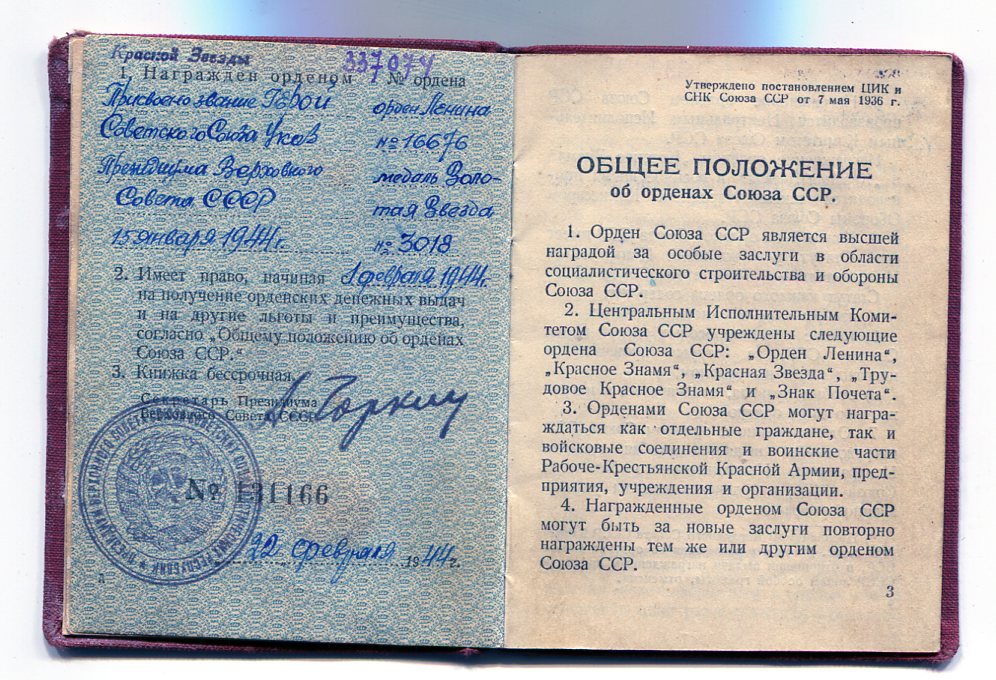 Красной Звезды 337074
1. Награжден орденом № ордена
Присвоено звание Герой орден Ленина
Советского Союза Указ № 16676
Президиума Верховного медаль Золо-
Совета СССР тая Звезда
15 января 1944 г. № 3018
2. Имеет право, начиная 1 февраля 1944 г.
на получение орденских денежных выдач
и на другие льготы и преимущества,
согласно „Общему положению об орденах
Союза ССР.“
3. Книжка бессрочная
Секретарь Президиума
Верховного Совета СССР
№ 131166
22 февраля 1944 г.
Утверждено постановлением ЦИК и
СНК Союза ССР от 7 мая 1936 г.
ОБЩЕЕ ПОЛОЖЕНИЕ
об орденах Союза ССР.
1. Орден Союза ССР является высшей
наградой за особые заслуги в области
социалистического строительства и обороны
Союза ССР.
2. Центральным Исполнительным Коми-
тетом Союза ССР учреждены следующие
ордена Союза ССР: „Орден Ленина“,
„Красное Знамя“, „Красная Звезда“, „Тру-
довое Красное Знамя“ и „Знак Почета“.
3. Орденами Союза ССР могут награ-
ждаться как отдельные граждане, так и
войсковые соединения и воинские части
Рабоче-Крестьянской Красной Армии, пред-
приятия, учреждения и организации.
4. Награжденные орденом Союза ССР
могут быть за новые заслуги повторно
награждены тем же или другим орденом
Союза ССР.
3